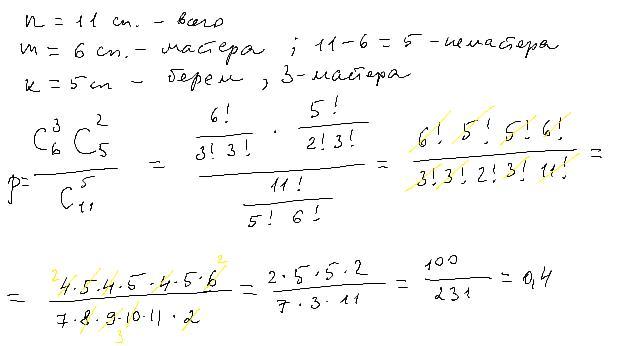 n = 11 сп. - всего
m = 6 сп. - мастера ; 11-6 = 5 - немастера
k = 5 сп - берем , 3-мастера
p = (C_6^3 C_5^2) / C_11^5 = (6!/(3! 3!) · 5!/(2! 3!)) / (11!/(5! 6!)) = (6! 5! 5! 6!) / (3! 3! 2! 3! 11!) =
= (²4·5·4·5·4·5·6²) / (7·8·9₃·10·11·2) = (2·5·5·2) / (7·3·11) = 100/231 = 0,4